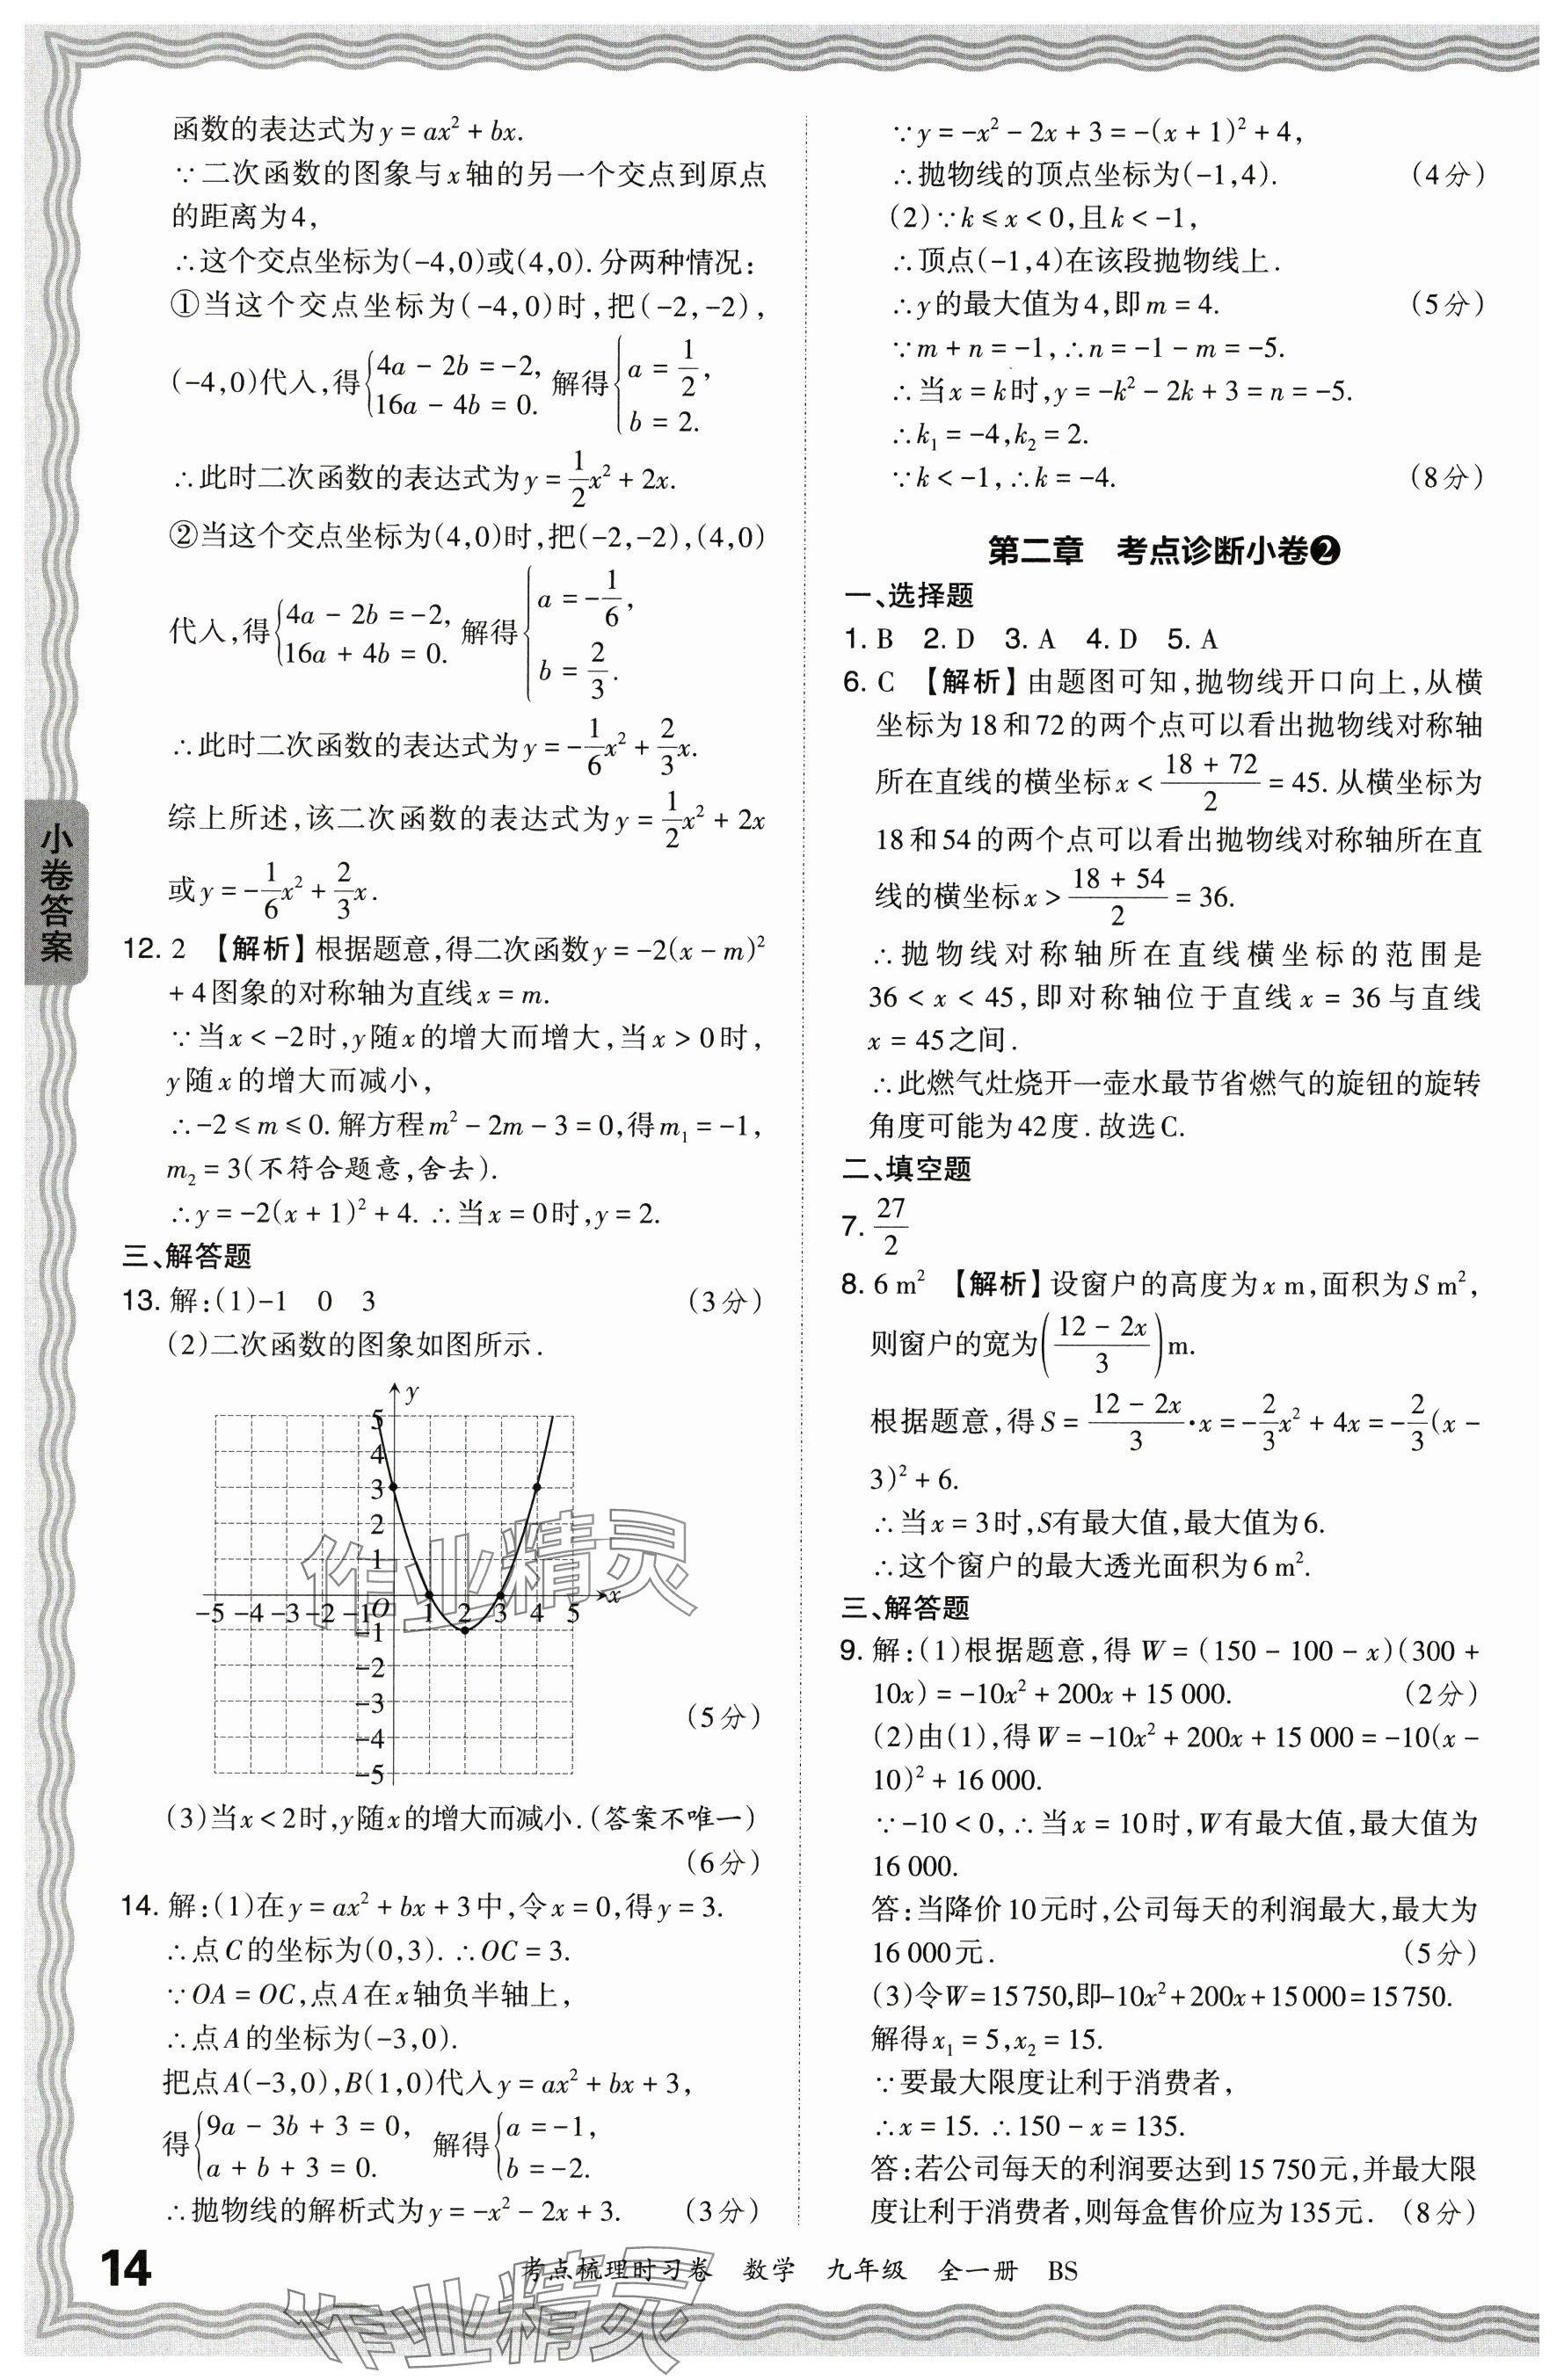 函数的表达式为y = ax² + bx.
∵二次函数的图象与x轴的另一个交点到原点
的距离为4,
∴这个交点坐标为(-4,0)或(4,0). 分两种情况:
①当这个交点坐标为(-4,0)时,把(-2,-2),
(-4,0)代入,得{4a - 2b = -2, 16a - 4b = 0. 解得{a = 1/2, b = 2.
∴此时二次函数的表达式为y = 1/2x² + 2x.
②当这个交点坐标为(4,0)时,把(-2,-2),(4,0)
代入,得{4a - 2b = -2, 16a + 4b = 0. 解得{a = -1/6, b = 2/3.
∴此时二次函数的表达式为y = -1/6x² + 2/3x.
综上所述,该二次函数的表达式为y = 1/2x² + 2x
或y = -1/6x² + 2/3x.
12. 2 【解析】根据题意,得二次函数y = -2(x - m)²
+ 4图象的对称轴为直线x = m.
∵当x < -2时,y随x的增大而增大,当x > 0时,
y随x的增大而减小,
∴-2 ≤ m ≤ 0. 解方程m² - 2m - 3 = 0,得m₁ = -1,
m₂ = 3(不符合题意,舍去).
∴y = -2(x + 1)² + 4. ∴当x = 0时,y = 2.
三、解答题
13. 解:(1)-1 0 3 (3分)
(2)二次函数的图象如图所示.
y
5
4
3
2
1
-5 -4 -3 -2 -1 O 1 2 3 4 5 x
-1
-2
-3
-4
-5
(5分)
(3)当x < 2时,y随x的增大而减小. (答案不唯一)
(6分)
14. 解:(1)在y = ax² + bx + 3中,令x = 0,得y = 3.
∴点C的坐标为(0,3). ∴OC = 3.
∵OA = OC,点A在x轴负半轴上,
∴点A的坐标为(-3,0).
把点A(-3,0),B(1,0)代入y = ax² + bx + 3,
得{9a - 3b + 3 = 0, a + b + 3 = 0. 解得{a = -1, b = -2.
∴抛物线的解析式为y = -x² - 2x + 3. (3分)
∵y = -x² - 2x + 3 = -(x + 1)² + 4,
∴抛物线的顶点坐标为(-1,4). (4分)
(2)∵k ≤ x < 0,且k < -1,
∴顶点(-1,4)在该段抛物线上.
∴y的最大值为4,即m = 4. (5分)
∵m + n = -1,∴n = -1 - m = -5.
∴当x = k时,y = -k² - 2k + 3 = n = -5.
∴k₁ = -4,k₂ = 2.
∵k < -1,∴k = -4. (8分)
第二章 考点诊断小卷❷
一、选择题
1. B 2. D 3. A 4. D 5. A
6. C 【解析】由题图可知,抛物线开口向上,从横
坐标为18和72的两个点可以看出抛物线对称轴
所在直线的横坐标x < (18 + 72)/2 = 45. 从横坐标为
18和54的两个点可以看出抛物线对称轴所在直
线的横坐标x > (18 + 54)/2 = 36.
∴抛物线对称轴所在直线横坐标的范围是
36 < x < 45,即对称轴位于直线x = 36与直线
x = 45之间.
∴此燃气灶烧开一壶水最节省燃气的旋钮的旋转
角度可能为42度. 故选C.
二、填空题
7. 27/2
8. 6 m² 【解析】设窗户的高度为x m,面积为S m²,
则窗户的宽为((12 - 2x)/3)m.
根据题意,得S = (12 - 2x)/3·x = -2/3x² + 4x = -2/3(x -
3)² + 6.
∴当x = 3时,S有最大值,最大值为6.
∴这个窗户的最大透光面积为6 m².
三、解答题
9. 解:(1)根据题意,得W = (150 - 100 - x)(300 +
10x) = -10x² + 200x + 15 000. (2分)
(2)由(1),得W = -10x² + 200x + 15 000 = -10(x -
10)² + 16 000.
∵-10 < 0,∴当x = 10时,W有最大值,最大值为
16 000.
答:当降价10元时,公司每天的利润最大,最大为
16 000元. (5分)
(3)令W = 15 750,即-10x² + 200x + 15 000 = 15 750.
解得x₁ = 5,x₂ = 15.
∵要最大限度让利于消费者,
∴x = 15. ∴150 - x = 135.
答:若公司每天的利润要达到15 750元,并最大限
度让利于消费者,则每盒售价应为135元. (8分)
小卷答案
作业精灵
14 考点梳理时习卷 数学 九年级 全一册 BS
作业精灵